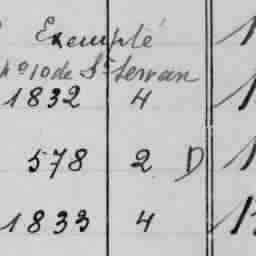 Exemplé
nº 10 de St Servan
1832 4
578 2 D
1833 4